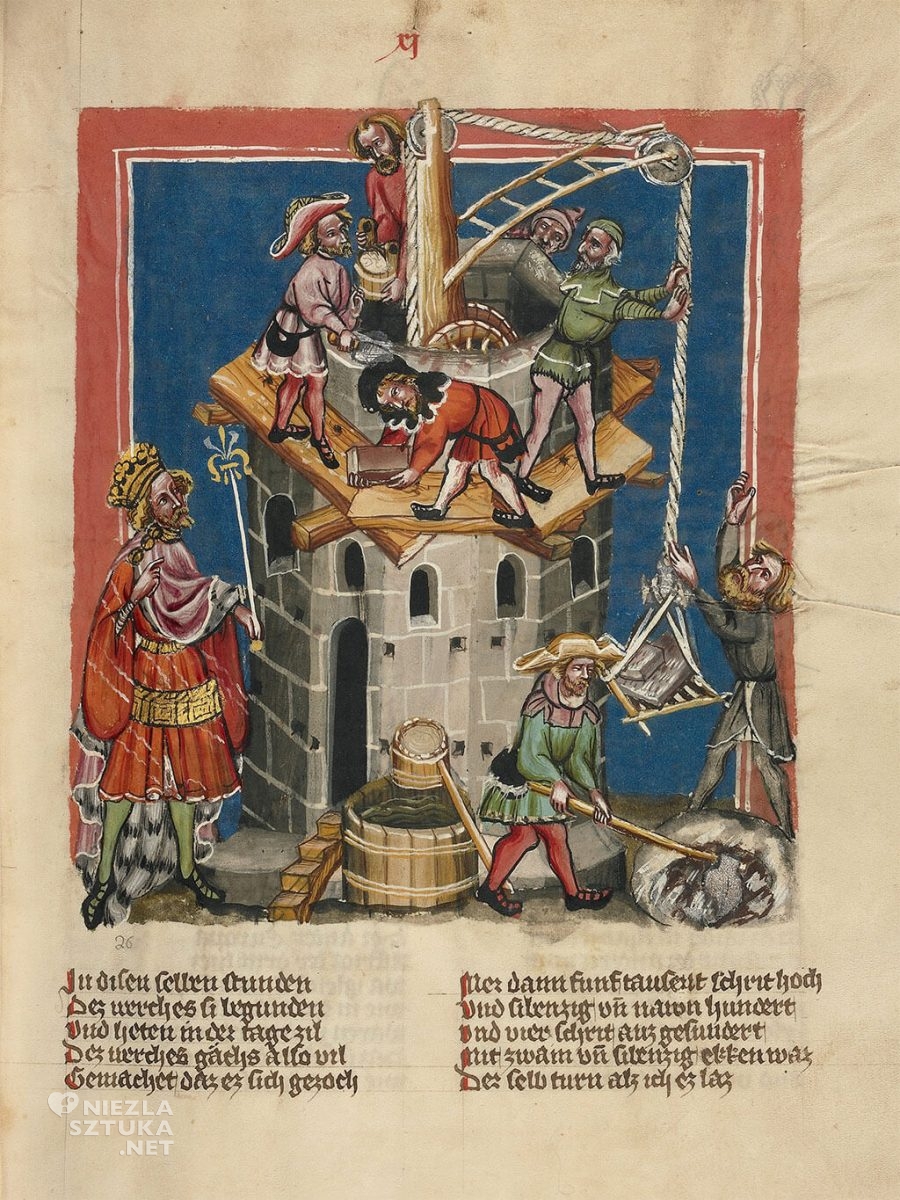 xj
26
In disen selben stunden
Dez werches si begunden
Vnd heten in der tage zil
Dez werches gächs also vil
Gemachet daz ez sich gezoch
Mer dann funf tausent schrit hoch
Vnd sibenzig vn̄ nawn hundert
vnd vier schrit auz gesundert
Mit zwain vn̄ sibenzig ekken waz
Der selb turn alz ich ez laz
NIEZLA
SZTUKA
.NET